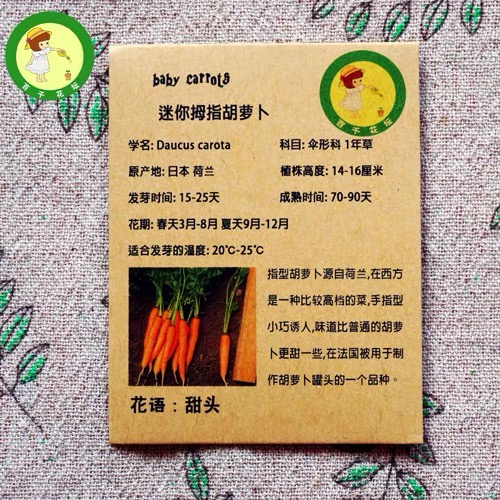 百千花坛
baby carrots
迷你拇指胡萝卜
百千花坛
学名: Daucus carota 科目: 伞形科 1年草
原产地: 日本 荷兰 植株高度: 14-16厘米
发芽时间: 15-25天 成熟时间: 70-90天
花期: 春天3月-8月 夏天9月-12月
适合发芽的温度: 20℃-25℃
指型胡萝卜源自荷兰,在西方
是一种比较高档的菜,手指型
小巧诱人,味道比普通的胡萝
卜更甜一些,在法国被用于制
作胡萝卜罐头的一个品种。
花语：甜头